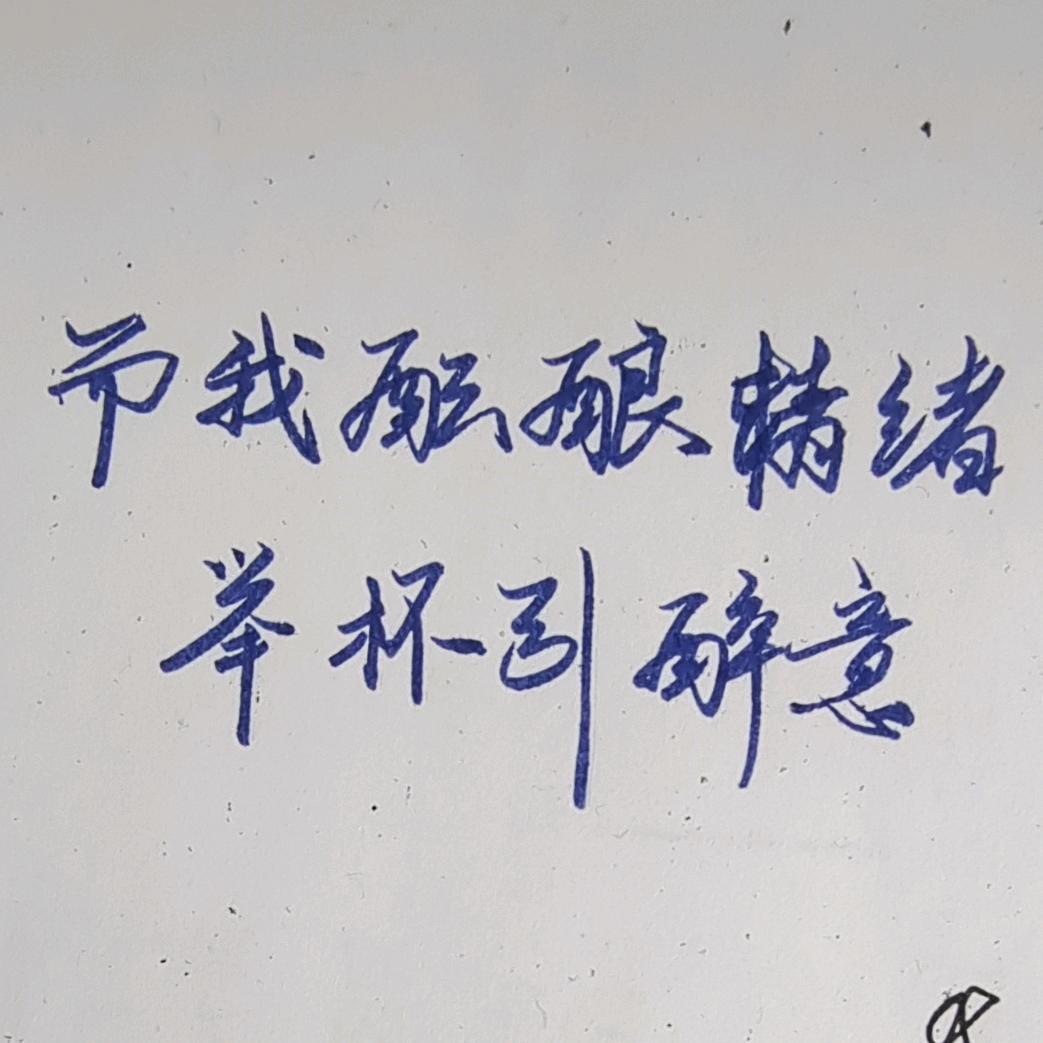 而我酝酿情绪
举杯引醉意